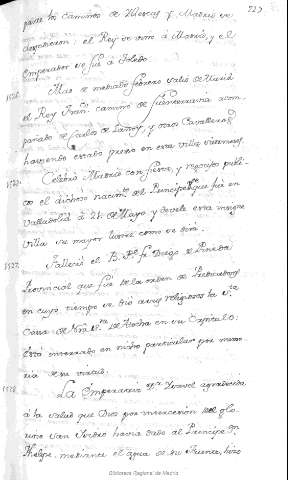 227
parte los caminos de Illescas y Madrid se
despidieron: el Rey se vino á Madrid, y el
Emperador se fué á Toledo.
1526. Mas de mediado febrero salió de Madrid
el Rey Fran.co camino de fuenterravia acom
pañado de Carlos de Lanoy, y otros Cavalleros,
haviendo estado preso en esta villa
Celebró Madrid con fiestas, y regocijo publi
co el dichoso nacim.to del Principe
Valladolid á 21 de Mayo y devele esta insigne
Villa su mayor lustre como se dira.
1527. Fallecio el B. P.e fr. Diego de Pineda
Provincial que fué de la orden de Predicadores
en cuyo tiempo se dió á sus religiosos la S.ta
Casa de Nra S.ra de Atocha en su Capitulo.
Está enterrado en nicho particular por memo
ria de su virtud.
1528. La Emperatriz D.a Isavel agradecida
á la salud que Dios por intercesion del glo
rioso San Isidro havia dado al Principe D.n
Phelipe, mediante el agua de su fuente, hizo
Biblioteca Regional de Madrid